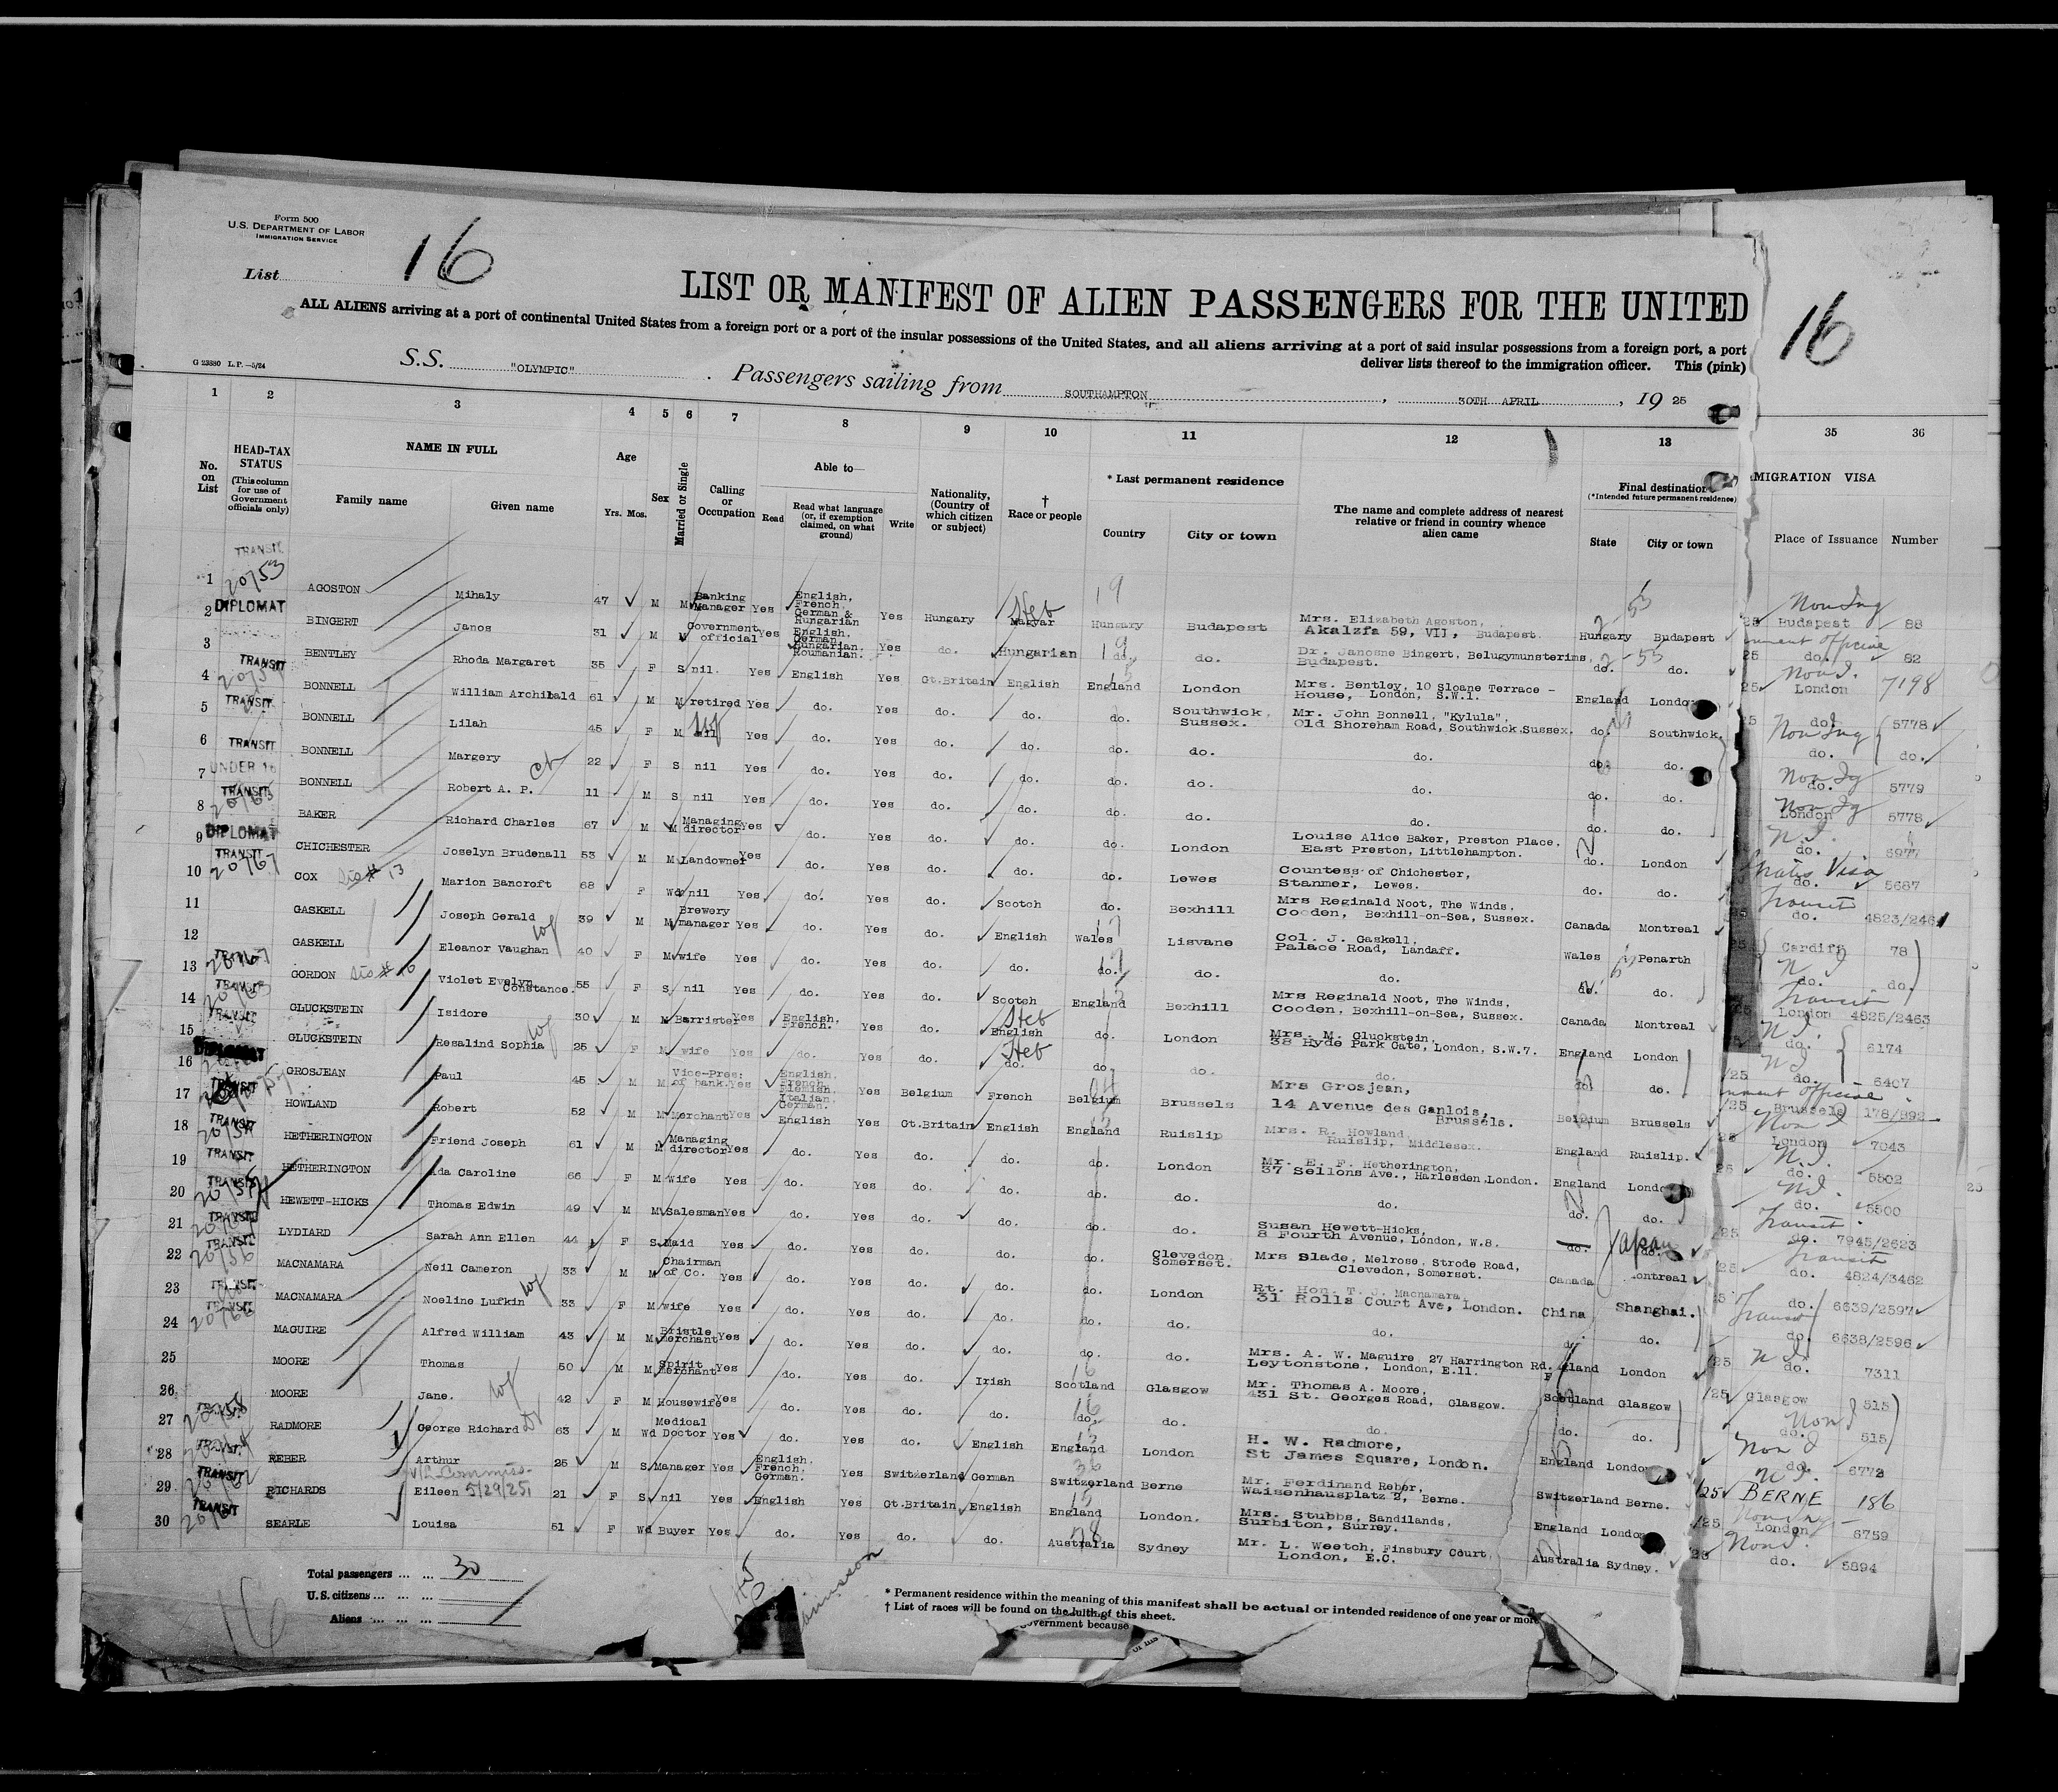 Form 500
U.S. DEPARTMENT OF LABOR
IMMIGRATION SERVICE
List 16
LIST OR MANIFEST OF ALIEN PASSENGERS FOR THE UNITED
16
ALL ALIENS arriving at a port of continental United States from a foreign port or a port of the insular possessions of the United States, and all aliens arriving at a port of said insular possessions from a foreign port, a port
deliver lists thereof to the immigration officer. This (pink)
G 23880 L.P.—5/24
S.S. "OLYMPIC" . Passengers sailing from SOUTHAMPTON , 30TH APRIL , 19 25
1 2 3 4 5 6 7 8 9 10 11 12 13 35 36
No. on List
HEAD-TAX STATUS (This column for use of Government officials only)
NAME IN FULL
Family name Given name
Age
Yrs. Mos.
Sex
Married or Single
Calling or Occupation
Able to—
Read
Read what language (or, if exemption claimed, on what ground)
Write
Nationality, (Country of which citizen or subject)
† Race or people
* Last permanent residence
Country City or town
The name and complete address of nearest relative or friend in country whence alien came
Final destination
(*Intended future permanent residence)
State City or town
MIGRATION VISA
Place of Issuance Number
1 TRANSIT 20/53 AGOSTON Mihaly 47 M M Banking Manager Yes English, French, German & Hungarian Yes Hungary Magyar Heb Hungary Budapest Mrs. Elizabeth Agoston, Akalzfa 59, VII, Budapest. Hungary Budapest 25 Budapest 88
2 DIPLOMAT BINGERT Janos 31 M M Government official Yes English. German. Hungarian. Roumanian. Yes do. Hungarian do. do. Dr. Janosne Bingert, Belugymunsterims, Budapest. do. do. 25 do. 82
3 BENTLEY Rhoda Margaret 35 F S nil. Yes English Yes Gt.Britain English England London Mrs. Bentley, 10 Sloane Terrace - House, London, S.W.1. England London 25 London 7198
4 TRANSIT BONNELL William Archibald 61 M M retired Yes do. Yes do. do. do. Southwick, Sussex. Mr. John Bonnell, "Kylula", Old Shoreham Road, Southwick.Sussex. do. Southwick. do. 5778
5 TRANSIT BONNELL Lilah 45 F M nil wf Yes do. Yes do. do. do. do. do. do. do. do. do.
6 TRANSIT BONNELL Margery 22 F S nil Yes do. Yes do. do. do. do. do. do. do. do. 5779
7 UNDER 16 BONNELL Robert A. P. 11 M S nil Yes do. Yes do. do. do. do. do. do. do. London 5778
8 TRANSIT BAKER Richard Charles 67 M M Managing director Yes do. Yes do. do. do. London Louise Alice Baker, Preston Place. East Preston, Littlehampton. do. London do. 6977
9 DIPLOMAT CHICHESTER Joselyn Brudenall 53 M M Landowner Yes do. Yes do. do. do. Lewes Countess of Chichester, Stanmer, Lewes. do. do. do. 5687
10 TRANSIT 20/67 COX Marion Bancroft 68 F Wd nil Yes do. Yes do. Scotch do. Bexhill Mrs Reginald Noot, The Winds, Cooden, Bexhill-on-Sea, Sussex. Canada Montreal Transit do. 4823/2461
11 GASKELL Joseph Gerald 39 M M Brewery manager Yes do. Yes do. English Wales Lisvane Col. J. Gaskell, Palace Road, Landaff. Wales Penarth Cardiff 78
12 GASKELL Eleanor Vaughan wf 40 F M wife Yes do. Yes do. do. do. do. do. do. do. do. do.
13 TRANSIT 20/67 GORDON Violet Evelyn Constance. 55 F S nil Yes do. Yes do. Scotch England Bexhill Mrs Reginald Noot, The Winds, Cooden, Bexhill-on-Sea, Sussex. Canada Montreal Transit London 4825/2463
14 TRANSIT GLUCKSTEIN Isidore 30 M M Barrister Yes English. French. Yes do. English Heb do. London Mrs. M. Gluckstein, 38 Hyde Park Gate, London, S.W.7. England London do. 6174
15 TRANSIT GLUCKSTEIN Resalind Sophia wf 25 F M wife Yes do. Yes do. do. Heb do. do. do. do. do. /25 do. 6407
16 DIPLOMAT GROSJEAN Paul 45 M M Vice-Pres: of bank. Yes English. French. Flemish. Italian. German. Yes Belgium French Belgium Brussels Mrs Grosjean, 14 Avenue des Ganlois, Brussels. Belgium Brussels /25 Brussels 178/892
17 TRANSIT HOWLAND Robert 52 M M Merchant Yes English Yes Gt.Britain English England Ruislip Mrs. R. Howland, Ruislip, Middlesex. England Ruislip. 25 London 7043
18 TRANSIT HETHERINGTON Friend Joseph 61 M M Managing director Yes do. Yes do. do. do. London Mr. E. F. Hetherington, 37 Sellons Ave., Harlesden.London. England London 25 do. 5502
19 TRANSIT HETHERINGTON Ada Caroline 66 F M Wife Yes do. Yes do. do. do. do. do. do. do. do. 5500
20 TRANSIT HEWETT-HICKS Thomas Edwin 49 M M Salesman Yes do. Yes do. do. do. do. Susan Hewett-Hicks, 8 Fourth Avenue, London, W.8. do. do. Japan /25 Transit do. 7945/2623
21 TRANSIT LYDIARD Sarah Ann Ellen 44 F S Maid Yes do. Yes do. do. do. Clevedon Somerset. Mrs Slade, Melrose, Strode Road, Clevedon, Somerset. Canada Montreal 25 Transit do. 4824/3462
22 TRANSIT 20/56 MACNAMARA Neil Cameron 33 M M Chairman of Co. Yes do. Yes do. do. do. London Rt. Hon. T. J. Macnamara, 31 Rolls Court Ave, London. China Shanghai. 25 do. 6639/2597
23 MACNAMARA Noeline Lufkin wf 33 F M wife Yes do. Yes do. do. do. do. do. do. do. Transit do. 6638/2596
24 TRANSIT MAGUIRE Alfred William 43 M M Bristle merchant Yes do. Yes do. do. do. do. Mrs. A. W. Maguire 27 Harrington Rd. Leytonstone, London, E.11. London /25 do. 7311
25 MOORE Thomas 50 M M Spirit merchant Yes do. Yes do. Irish Scotland Glasgow Mr. Thomas A. Moore, 431 St. Georges Road, Glasgow. Scotland Glasgow /25 Glasgow 515
26 MOORE Jane. wf 42 F M Housewife Yes do. Yes do. do. do. do. do. do. do. do. 515
27 RADMORE George Richard Dr 63 M Wd Medical Doctor Yes do. Yes do. English England London H. W. Radmore, St James Square, London. England London do. 6772
28 TRANSIT REBER Arthur 25 M S Manager Yes English. French. German. Yes Switzerland German Switzerland Berne Mr. Ferdinand Reber, Waisenhausplatz 2, Berne. Switzerland Berne. /25 BERNE 186
29 TRANSIT RICHARDS Eileen 5/29/25 21 F S nil Yes English Yes Gt.Britain English England London. Mrs. Stubbs, Sandilands, Surbiton, Surrey. England London /25 London 6759
30 TRANSIT SEARLE Louisa 51 F Wd Buyer Yes do. Yes do. do. Australia Sydney Mr. L. Weetch, Finsbury Court, London, E.C. Australia Sydney. 25 do. 5894
Total passengers ... ... 30
U.S. citizens ... ... ...
Aliens ... ... ...
16
* Permanent residence within the meaning of this manifest shall be actual or intended residence of one year or more
† List of races will be found on the of this sheet.
government because